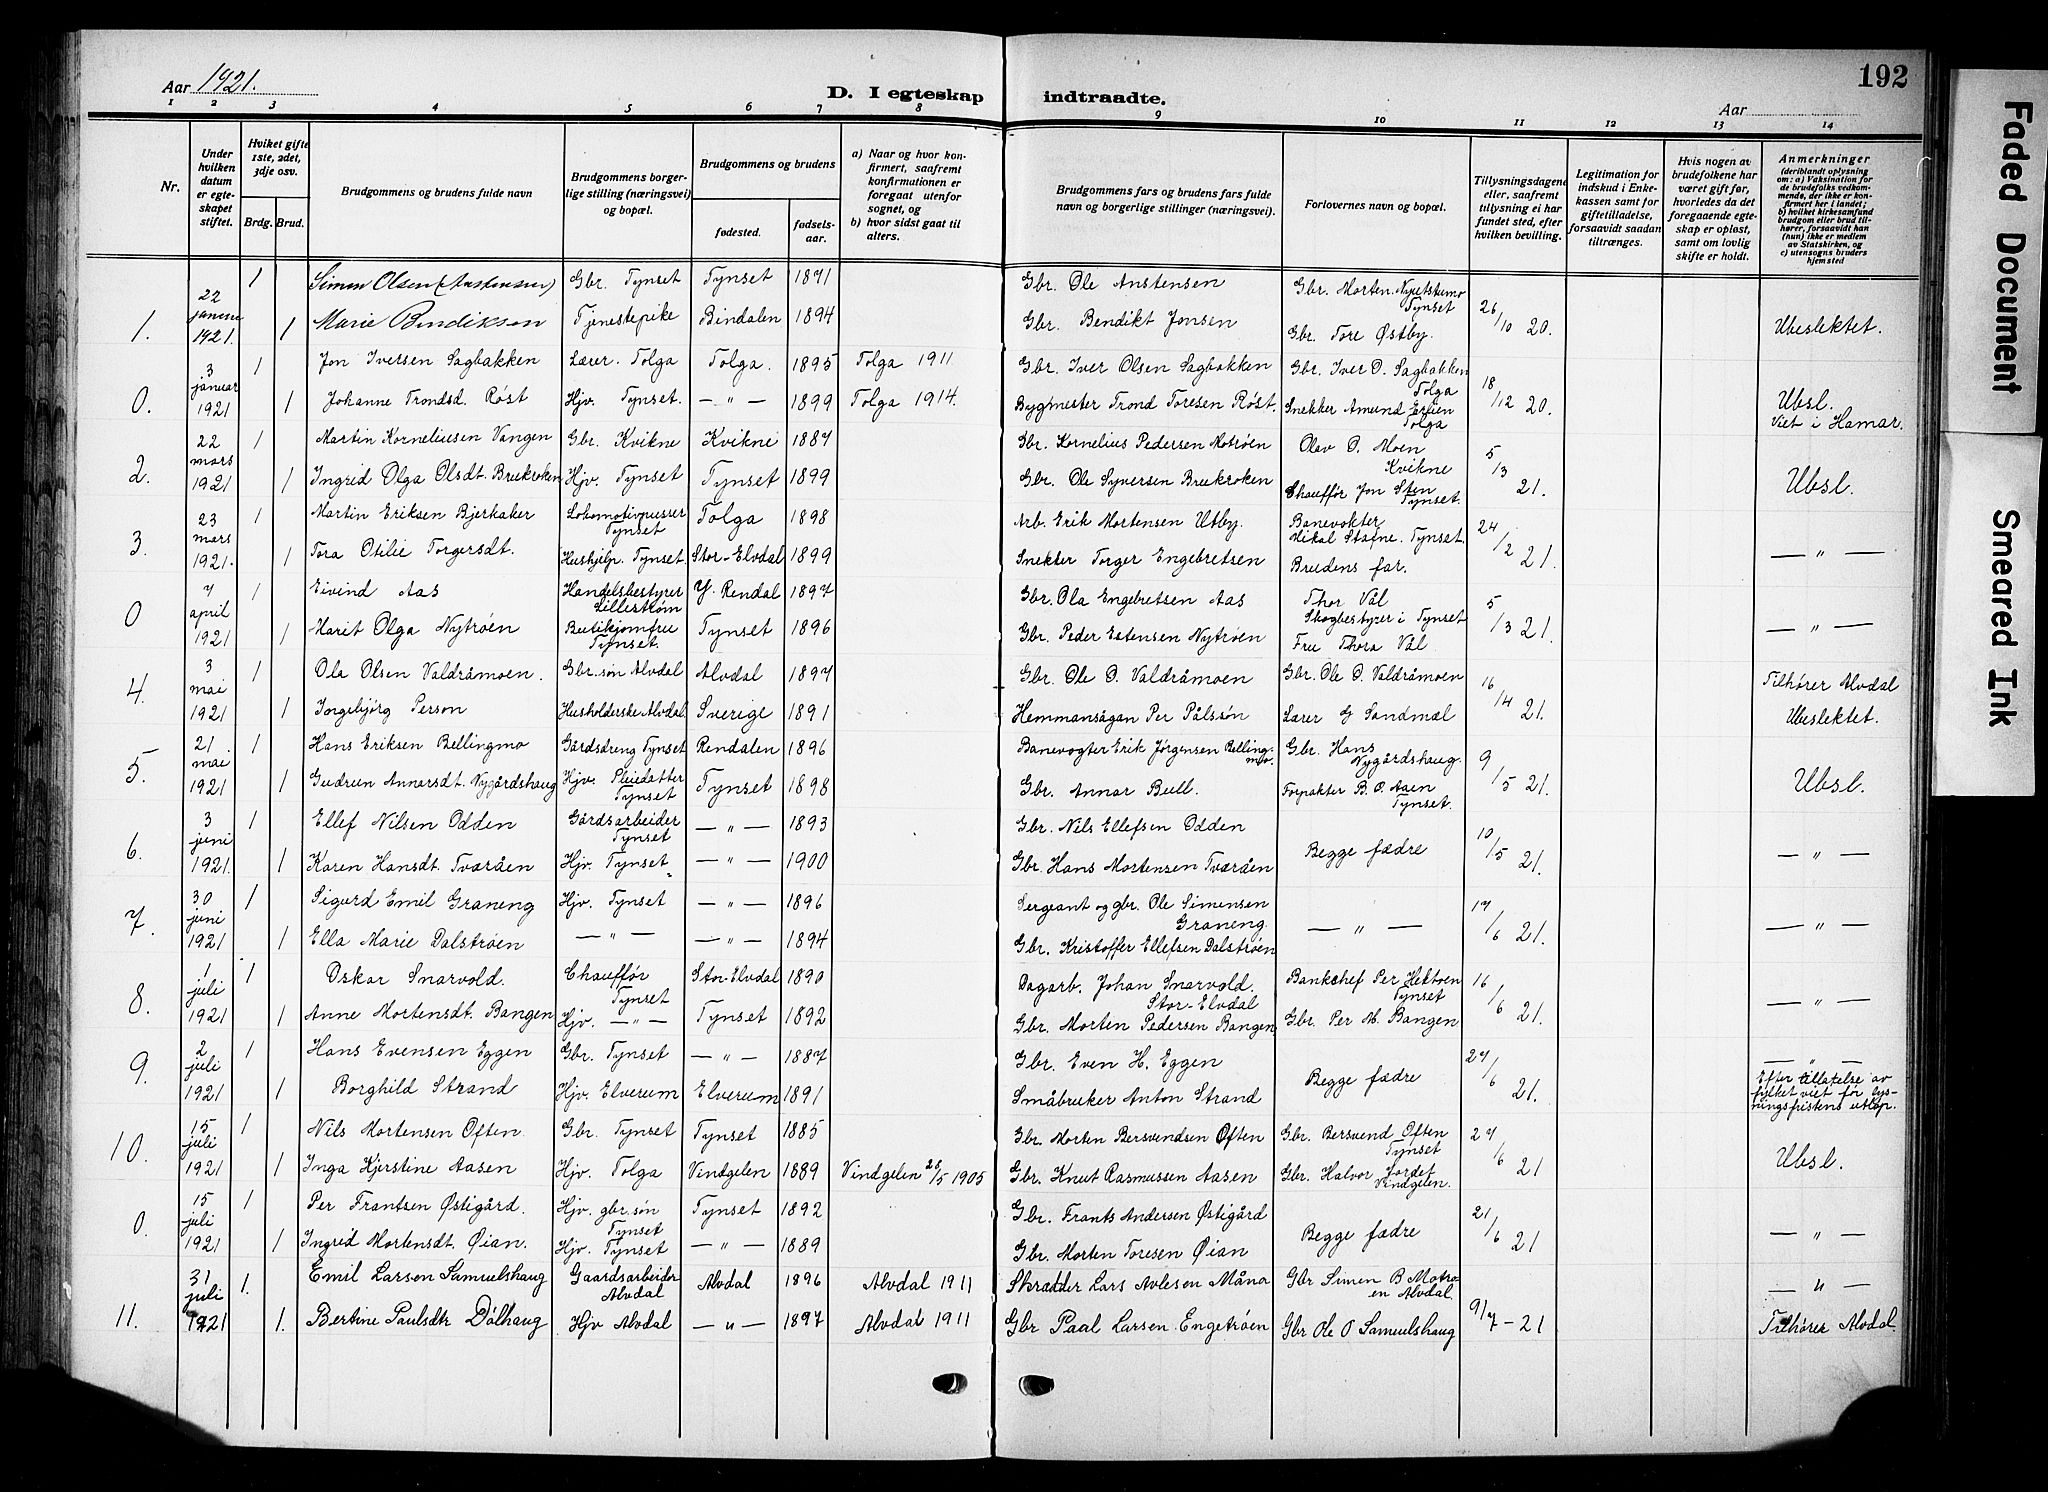 192
Aar 1921.
D. I egteskap indtraadte.
Aar
1 2 3 4 5 6 7 8 9 10 11 12 13 14
Nr.
Under hvilken datum er egteskapet stiftet.
Hviket gifte 1ste, 2det, 3dje osv.
Brdg. Brud.
Brudgommens og brudens fulde navn
Brudgommens borgerlige stilling (næringsvei) og bopæl.
Brudgommens og brudens
fødested.
fødselsaar.
a) Naar og hvor konfirmert, saafremt konfirmationen er foregaat utenfor sognet, og
b) hvor sidst gaat til alters.
Brudgommens fars og brudens fars fulde navn og borgerlige stillinger (næringsvei).
Forlovernes navn og bopæl.
Tillysningsdagene eller, saafremt tillysning ei har fundet sted, efter hvilken bevilling.
Legitimation for indskud i Enkekassen samt for giftetilladelse, forsaavidt saadan tiltrænges.
Hvis nogen av brudefolkene har været gift før, hvorledes da det foregaaende egteskap er opløst, samt om lovlig skifte er holdt.
Anmerkninger (deriblandt oplysning om: a) Vaksination for de brudefolks vedkommende, der ikke er konfirmert her i landet; b) hvilket kirkesamfund brudgom eller brud tilhører, forsaavidt han (hun) ikke er medlem av Statskirken, og c) utensogns bruders hjemsted
1. 22 januar 1921. 1 Simen Olsen (Anstensen) Gbr. Tynset Tynset 1871 Gbr. Ole Anstensen Gbr. Morten Tynset 26/10 20. Ubeslektet.
1 Marie Bendikson Tjenestepike Bindalen 1894 Gbr. Bendikt Jonsen Gbr. Tore Østby.
0. 3 januar 1921 1 Jon Iversen Sagbakken Lærer. Tolga Tolga. 1895 Tolga 1911. Gbr. Iver Olsen Sagbakken Gbr. Iver O. Sagbakken Tolga 18/12 20. Ubsl. Viet i Hamar.
1 Johanne Trondsd. Røst Hjv. Tynset. — " — 1899 Tolga 1914. Bygmester Trond Toresen Røst. Snekker Amund Erlien Tolga
2. 22 mars 1921 1 Martin Korneliusen Vangen Gbr. Kvikne Kvikne 1887 Gbr. Kornelius Pedersen Motrøen Olav O. Moen Kvikne 5/3 21. Ubsl.
1 Ingrid Olga Olsdt. Brekroken Hjv. Tynset Tynset 1899 Gbr. Ole Syversen Brekroken Chauffør Jon Sten Tynset.
3. 23 mars 1921. 1 Martin Eriksen Bjerkaker Lokomotivpusser Tynset Tolga 1898 Arb. Erik Mortensen Utby. Banevokter Mikal Stafne. Tynset. 24/2 21. — " —
1 Tora Otilie Torgersdt. Hushjelp. Tynset. Stor-Elvdal 1899 Snekker Torger Engebretsen Brudens far.
0 7 april 1921 1 Eivind Aas Handelsbestyrer Lillestrøm Y. Rendal 1897 Gbr. Ola Engebretsen Aas Thor Vål Skogbestyrer i Tynset 5/3 21. — " —
1 Marit Olga Nytrøen Butikjomfru Tynset. Tynset 1896 Gbr. Peder Estensen Nytrøen Fru Thora Vål
4. 3 mai 1921 1 Ola Olsen Valdråmoen. Gbr. søn Alvdal Alvdal 1897 Gbr. Ole O. Valdråmoen Gbr. Ole O. Valdråmoen 16/4 21. Tilhører Alvdal
1 Ingebjørg Person Husholderske Alvdal. Sverige 1891 Hemmansägan Per Pålssön Lærer G Sandmæl Ubeslektet.
5. 21. mai 1921 1 Hans Eriksen Bellingmo Gårdsdreng Tynset Rendalen 1896 Banevogter Erik Jørgensen Bellingmo. Gbr. Hans Nygårdshaug. 9/5 21. Ubsl.
1 Gudrun Annarsdt. Nygårdshaug Hjv. Pleiedatter Tynset Tynset 1898 Gbr. Annar Bull. Forpakter B. O. Aaen Tynset.
6. 3 juni 1921. 1 Ellef Nilsen Odden Gårdsarbeider Tynset — " — 1893 Gbr. Nils Ellefsen Odden Begge fædre 10/5 21. — " —
1 Karen Hansdt. Tværåen Hjv. Tynset — " — 1900 Gbr. Hans Mortensen Tværåen
7. 30 juni 1921 1 Sigurd Emil Graneng Hjv. Tynset — " — 1896 Sergeant og gbr. Ole Simensen Graneng. — " — 17/6 21. — " —
1 Ella Marie Dalstrøen — " — — " — 1894 Gbr. Kristoffer Ellefsen Dalstrøen
8. 1 juli 1921 1 Oskar Snarvold. Chauffør Tynset Stor-Elvdal 1890 Dagarb. Johan Snarvold. Stor-Elvdal Bankchef Per Hektoen Tynset 16/6 21. — " —
1 Anne Mortensdt. Bangen Hjv. — " — Tynset 1892 Gbr. Morten Pedersen Bangen Gbr. Per M. Bangen
9. 2 juli 1921 1 Hans Evensen Eggen Gbr. Tynset — " — 1887 Gbr. Even H. Eggen Begge fædre 27/6 21. — " —
1 Borghild Strand Hjv. Elverum Elverum 1891 Småbruker Anton Strand Efter tillatelse av fylket viet før lysningsfristens utløp.
10. 15 juli 1921 1 Nils Mortensen Øften Gbr. Tynset Tynset 1885 Gbr. Morten Bersvendsen Øften Gbr. Bersvend Øften Tynset 27/6 21 Ubsl.
1 Inga Kjerstine Aasen Hjv. Tolga Vindgelen 1889 Vindgelen 28/5 1905 Gbr. Knut Rasmussen Aasen Gbr. Halvor Jordet Vindgelen.
0. 15 juli 1921 1 Per Frantsen Østigård. Hjv. gbr. søn Tynset Tynset 1892 Gbr. Frants Andersen Østigård Begge fædre 21/6 21 — " —
1 Ingrid Mortensdt. Øian. Hjv. Tynset — " — 1889 Gbr. Morten Toresen Øian
11. 31 juli 1921 1. Emil Larsen Samuelshaug Gaardsarbeider Alvdal Alvdal 1896 Alvdal 1911 Skrædder Lars Avlesen Måna Gbr Simen B Motroen Alvdal. 9/7-21 — " —
1. Bertine Paulsdtr Dølhaug Hjv Alvdal — " — 1897 Alvdal 1911 Gbr Paal Larsen Engetrøen Gbr Ole O Samuelshaug Tilhører Alvdal
Faded Document
Smeared Ink